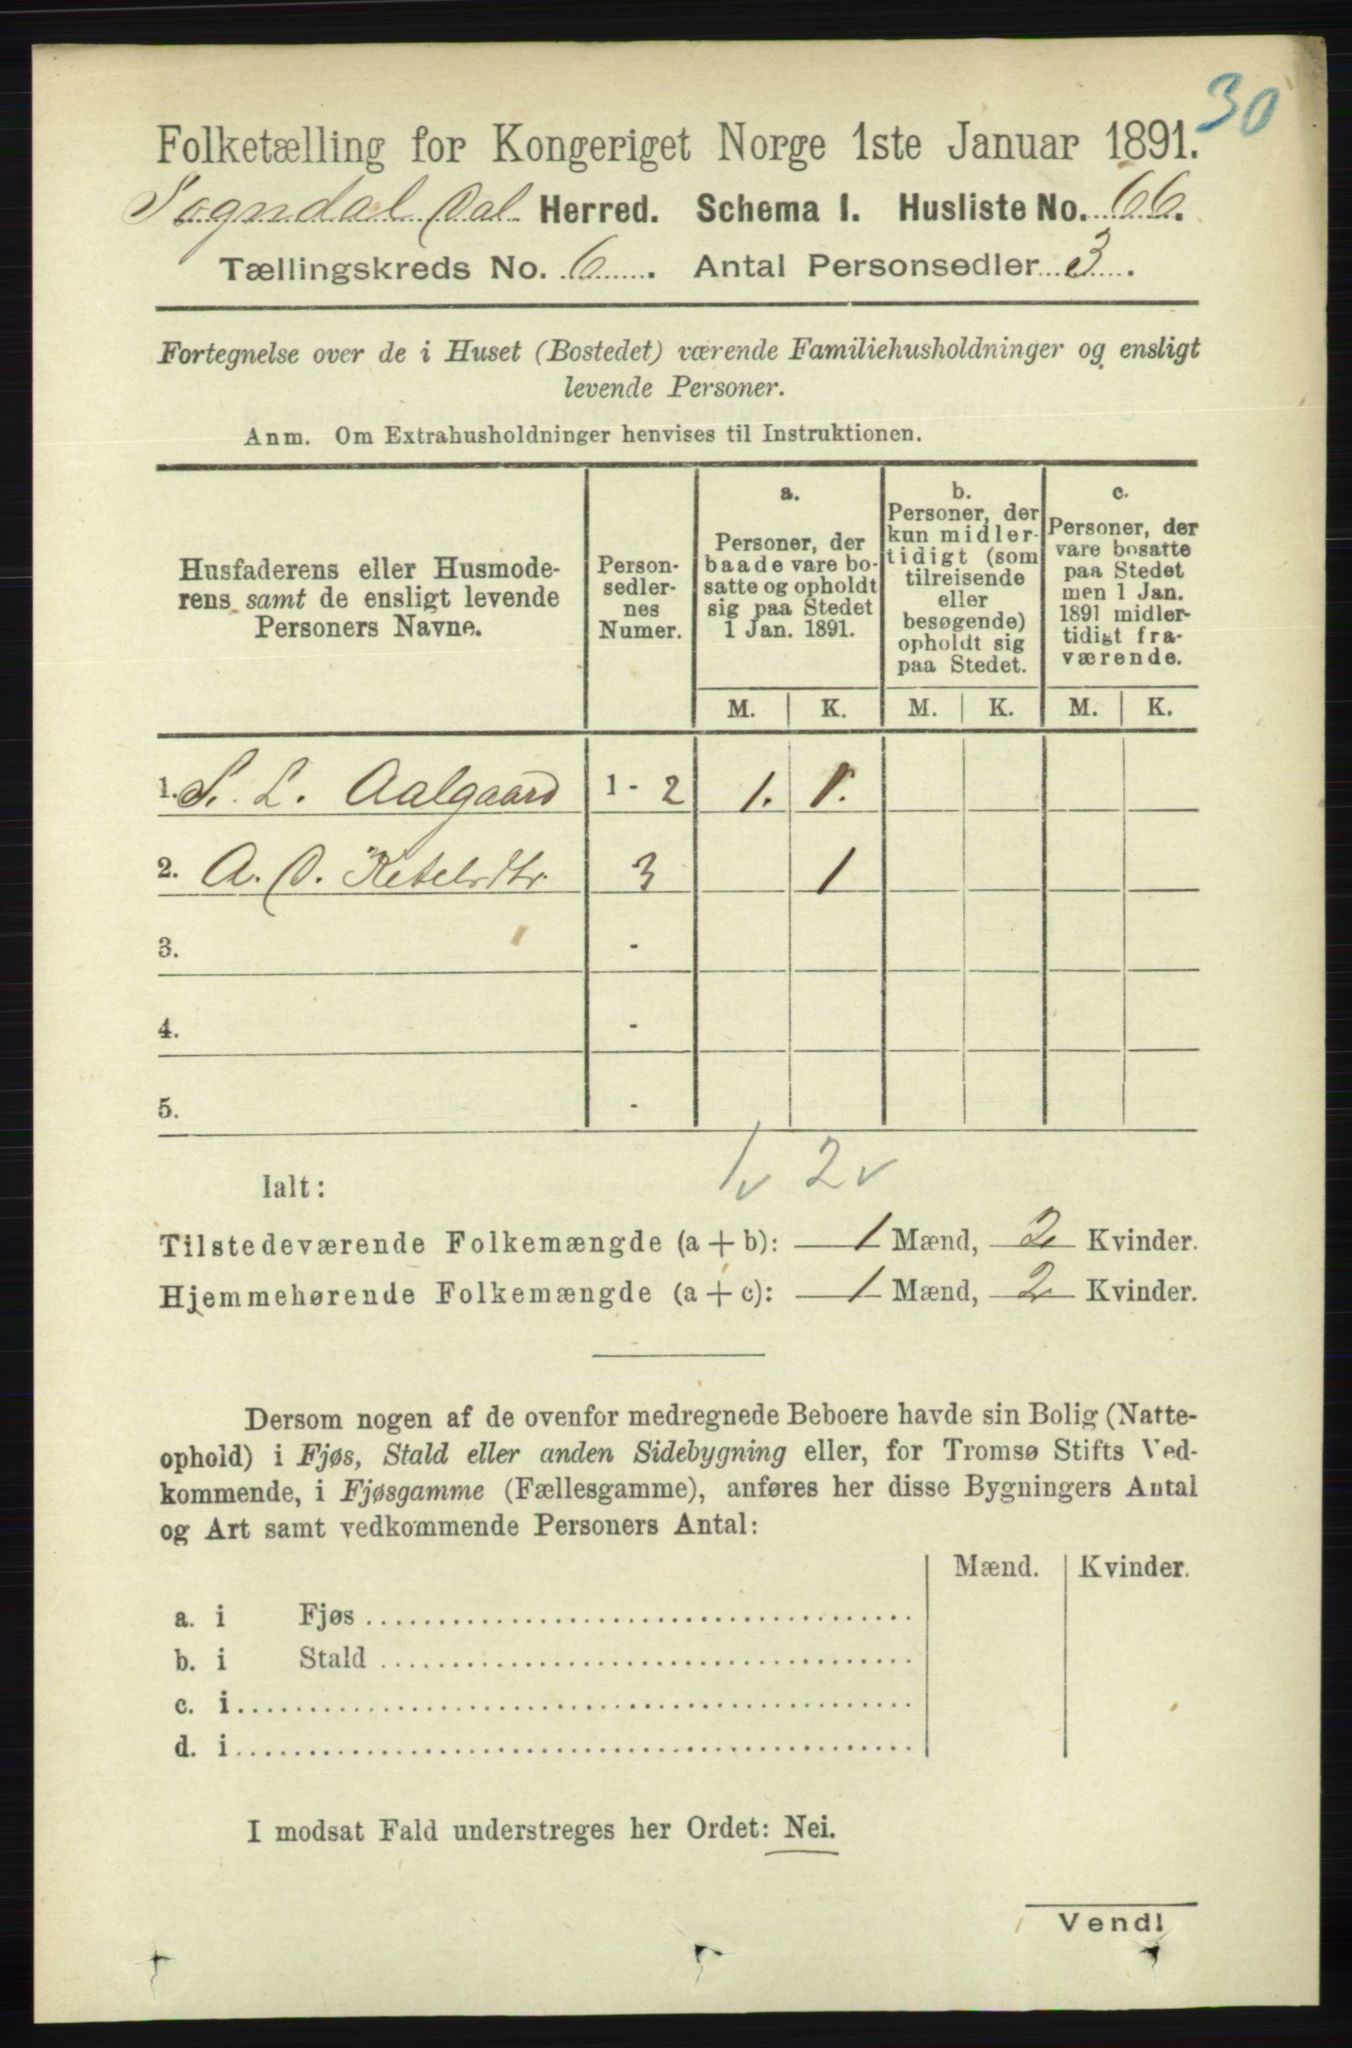 30
Folketælling for Kongeriget Norge 1ste Januar 1891.
Sogndal Dal Herred. Schema I. Husliste No. 66.
Tællingskreds No. 6. Antal Personsedler 3.
Fortegnelse over de i Huset (Bostedet) værende Familiehusholdninger og ensligt
levende Personer.
Anm. Om Extrahusholdninger henvises til Instruktionen.
Husfaderens eller Husmode-
rens samt de ensligt levende
Personers Navne.
Person-
sedler-
nes
Numer.
a.
Personer, der
baade vare bo-
satte og opholdt
sig paa Stedet
1 Jan. 1891.
b.
Personer, der
kun midler-
tidigt (som
tilreisende
eller
besøgende)
opholdt sig
paa Stedet.
c.
Personer, der
vare bosatte
paa Stedet
men 1 Jan.
1891 midler-
tidigt fra-
værende.
M. K. M. K. M. K.
1. S. L. Aalgaard 1 - 2 1. 1.
2. A. O. Ketelsdtr. 3 1
3. -
4. -
5. -
1 v 2 v
Ialt:
Tilstedeværende Folkemængde (a + b): 1 Mænd, 2 Kvinder.
Hjemmehørende Folkemængde (a + c): 1 Mænd, 2 Kvinder.
Dersom nogen af de ovenfor medregnede Beboere havde sin Bolig (Natte-
ophold) i Fjøs, Stald eller anden Sidebygning eller, for Tromsø Stifts Ved-
kommende, i Fjøsgamme (Fællesgamme), anføres her disse Bygningers Antal
og Art samt vedkommende Personers Antal:
Mænd. Kvinder.
a. i Fjøs
b. i Stald
c. i
d. i
I modsat Fald understreges her Ordet: Nei.
Vend!